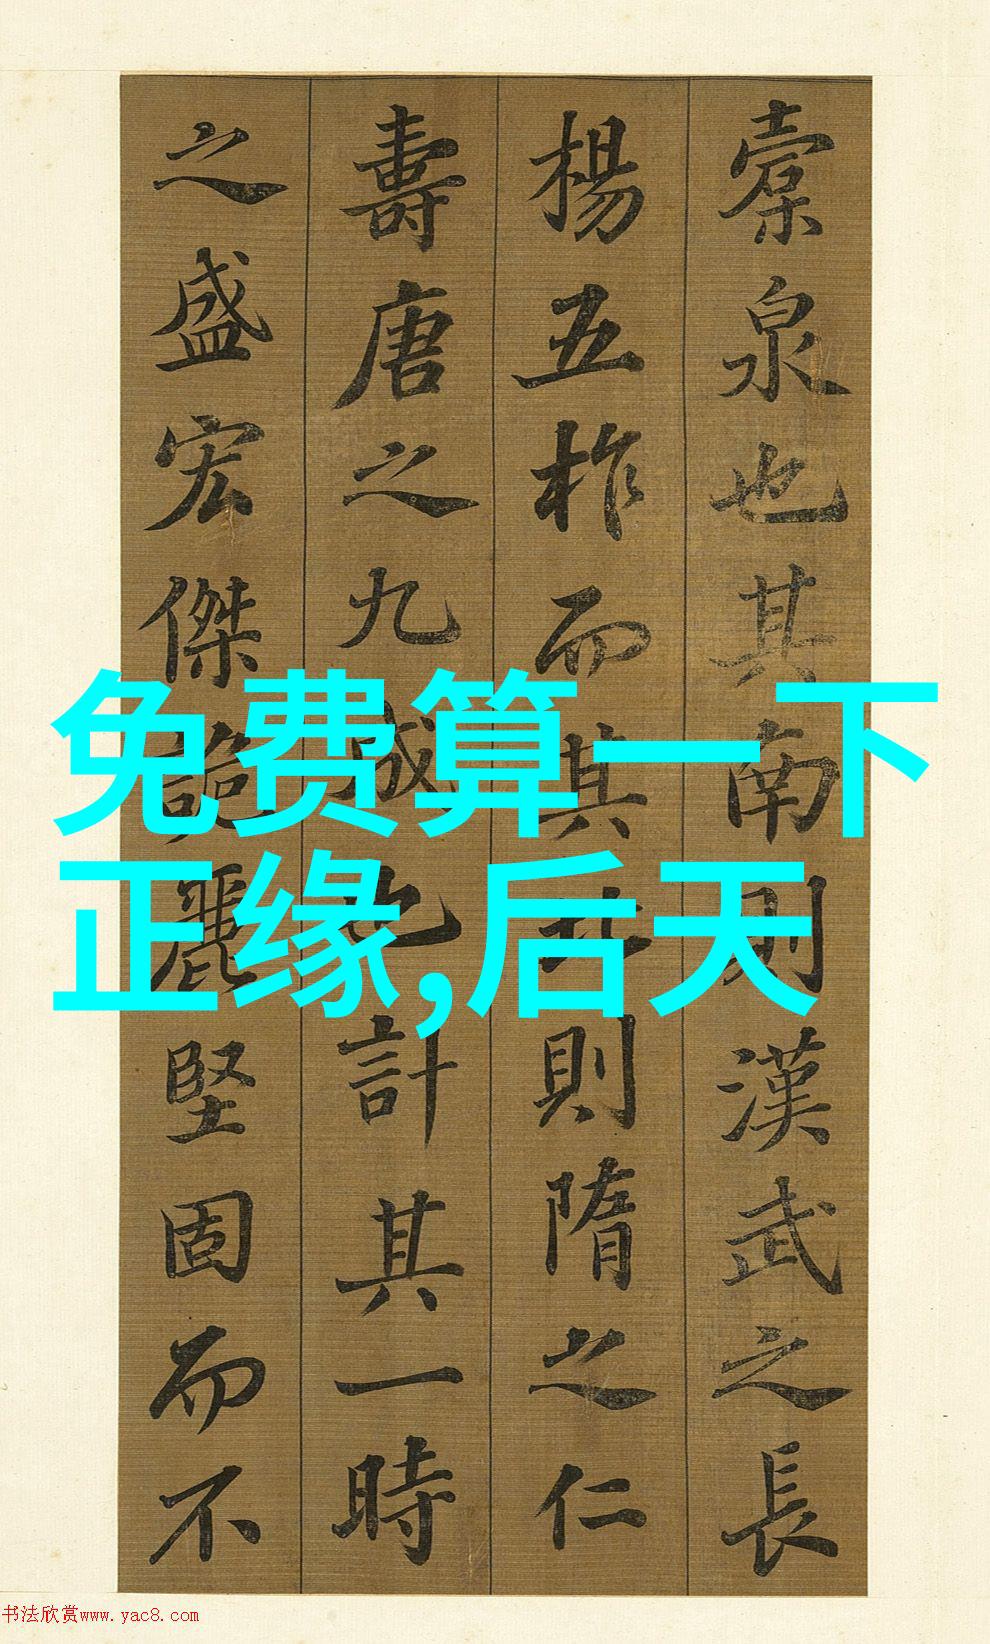 槖泉也其南則漢武之長
楊五柞而其北則隋之仁
壽唐之九成也計其一時
之盛宏傑詭麗堅固而不
免费算一下
正缘,后天
书法欣赏www.yac8.com